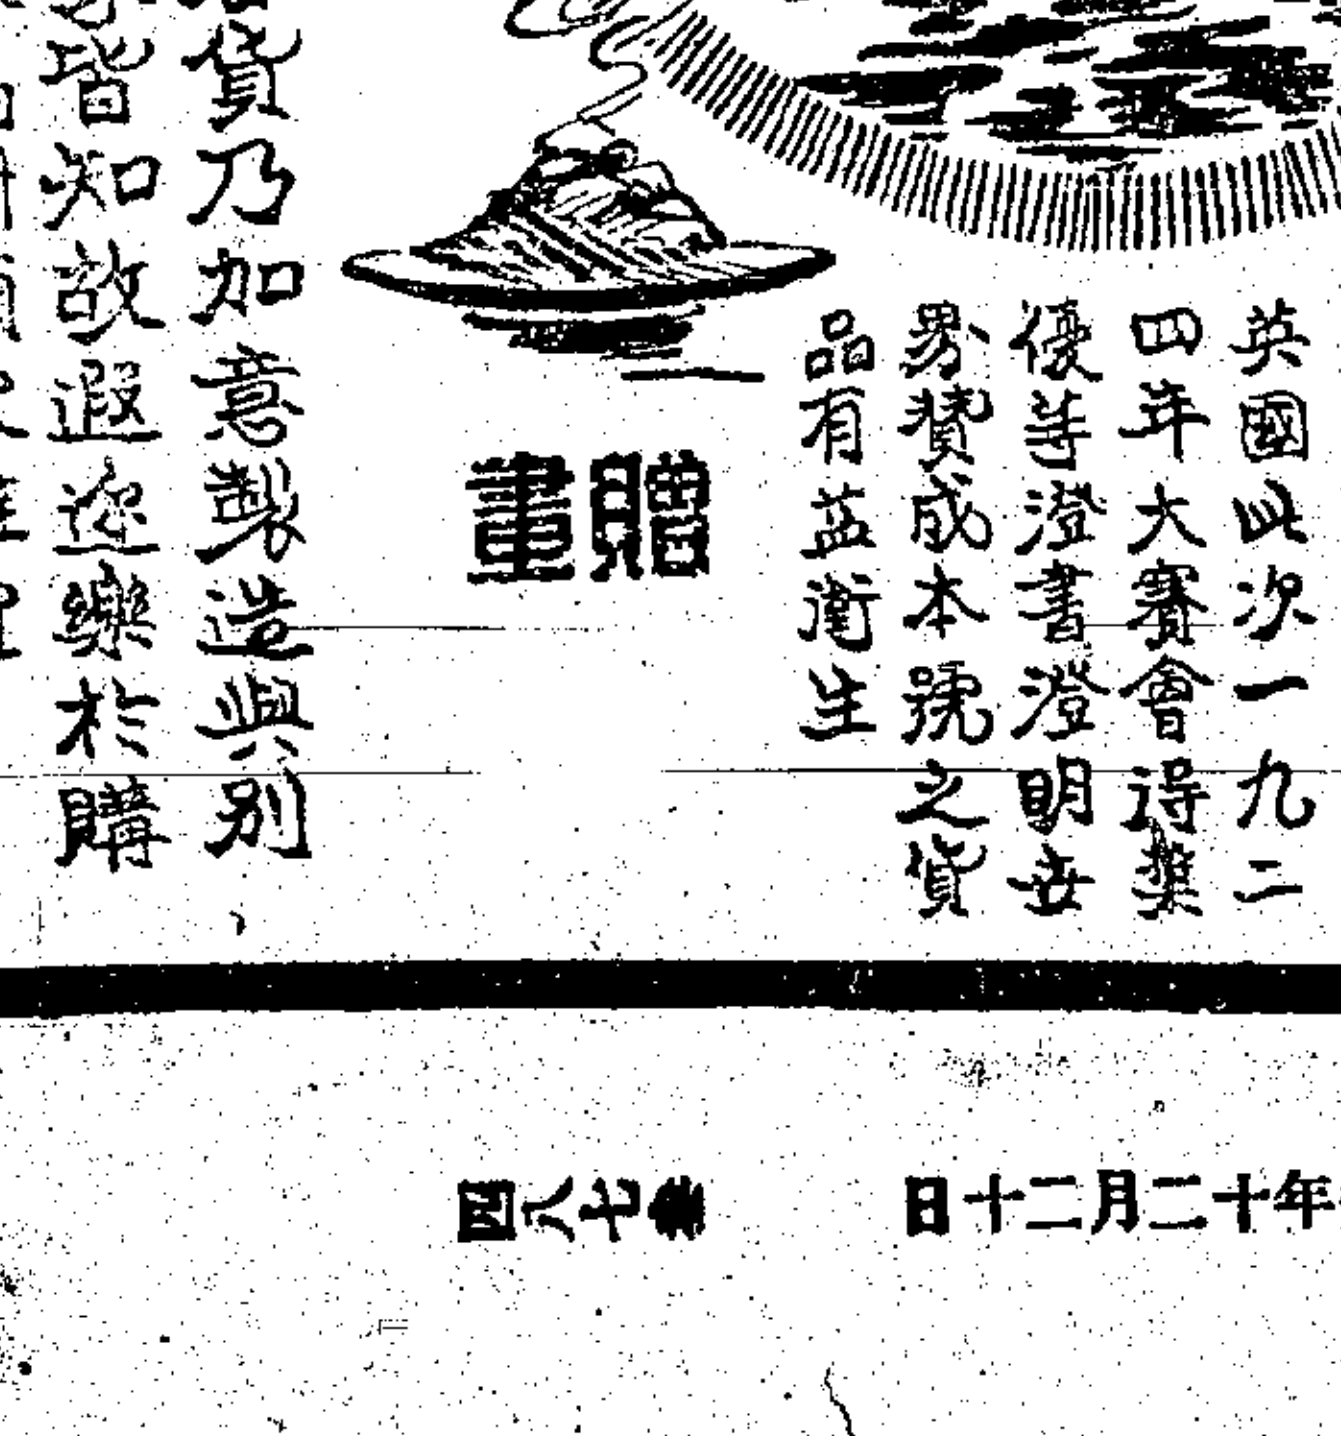 英國此次一九二
四年大賽會得獎
優等澄書澄明世
界贊成本號之貨
品有益衛生
贈畫
貨乃加意製造與別
皆知故遐迩樂於購
年十二月二十日
叁七八四